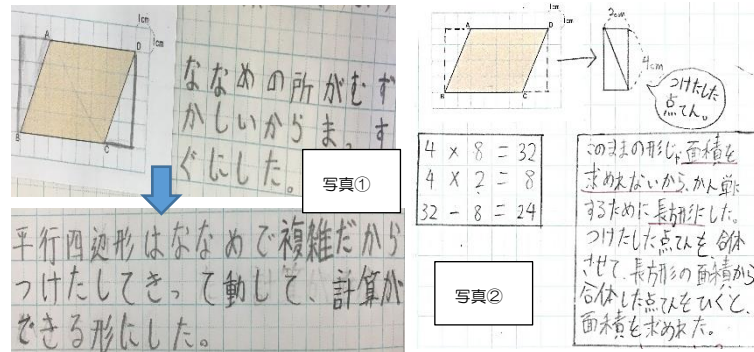 1cm
1cm
A
D
B
C
ななめの所がむず
かしいからまっす
ぐにした。
写真①
平行四辺形はななめで複雑だから
つけたしてきって動して、計算が
できる形にした。
1cm
1cm
A
D
B
C
2cm
4cm
つけたした
点てん。
4 × 8 = 32
4 × 2 = 8
32 - 8 = 24
写真②
このままの形じゃ面積を
求めれないから、かん単に
するために長方形にした。
つけたした点てんを合体
させて、長方形の面積から
合体した点てんをひくと、
面積を求めれた。